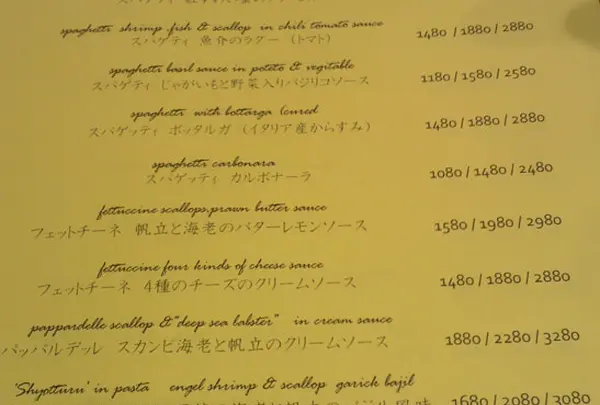 spaghetti shrimp.fish & scallop in chili tomato sauce
スパゲティ 魚介のラグー (トマト)
1480 / 1880 / 2880
spaghetti basil sauce in poteto & vegitable
スパゲティ じゃがいもと野菜入りバジリコソース
1180 / 1580 / 2580
spaghetti with bottarga (cured
スパゲッティ ボッタルガ (イタリア産からすみ)
1480 / 1880 / 2880
spaghetti carbonara
スパゲッティ カルボナーラ
1080 / 1480 / 2480
fettuccine scallops,prawn butter sauce
フェットチーネ 帆立と海老のバターレモンソース
1580 / 1980 / 2980
fettuccine four kinds of cheese sauce
フェットチーネ 4種のチーズのクリームソース
1480 / 1880 / 2880
pappardelle scallop &"deep sea labster" in cream sauce
パッパルデッレ スカンピ海老と帆立のクリームソース
1880 / 2280 / 3280
'Shyotturu' in pasta engel shrimp & scallop garick bajil
1680 / 2080 / 3080